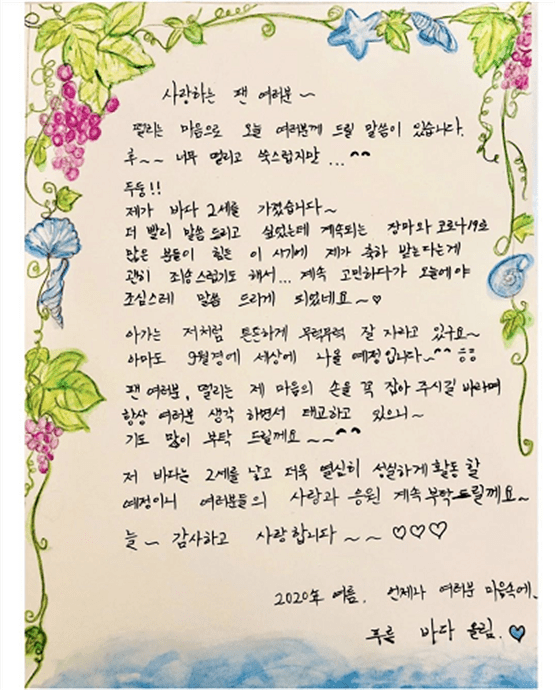 사랑하는 팬 여러분 ~
떨리는 마음으로 오늘 여러분께 드릴 말씀이 있습니다.
후~~ 너무 떨리고 쑥스럽지만 ... ^^
두둥!!
제가 바다 2세를 가졌습니다~
더 빨리 말씀 드리고 싶었는데 계속되는 장마와 코로나19로
많은 분들이 힘든 이 시기에 제가 축하 받는다는게
괜히 죄송스럽기도 해서... 계속 고민하다가 오늘에야
조심스레 말씀 드리게 되었네요~♡
아가는 저처럼 튼튼하게 무럭무럭 잘 자라고 있구요~
아마도 9월경에 세상에 나올 예정입니다~^^
팬 여러분, 떨리는 제 마음의 손을 꼭 잡아 주시길 바라며
항상 여러분 생각 하면서 태교하고 있으니~
기도 많이 부탁 드릴께요~~^^
저 바다는 2세를 낳고 더욱 열심히 성실하게 활동 할
예정이니 여러분들의 사랑과 응원 계속 부탁드릴께요~
늘~ 감사하고 사랑합니다~~ ♡♡♡
2020年 여름. 언제나 여러분 마음속에.
푸른 바다 올림.♥